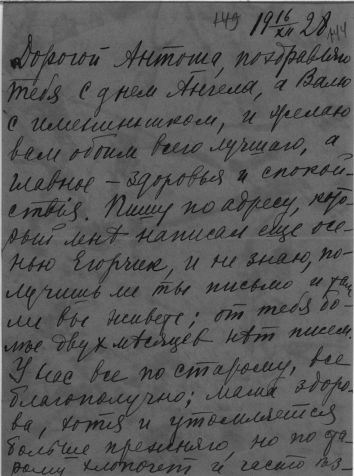 149
19 16/XII 28 144
Дорогой Антоша, поздравляю
тебя с днем Ангела, а Валю
с именинником, и желаю
вам обоим всего лучшаго, а
главное – здоровья и спокой-
ствiя. Пишу по адресу, кото-
рый мнѣ написал еще осе-
нью Егорчик, и не знаю, по-
лучишь ли ты письмо и там
ли вы живете; от тебя бо-
лье двух мѣсяцев нѣт писем.
У нас все по старому, все
благополучно; мама здоро-
ва, хотя и утомляется
больше прежняго, но по
хлопочет и часто